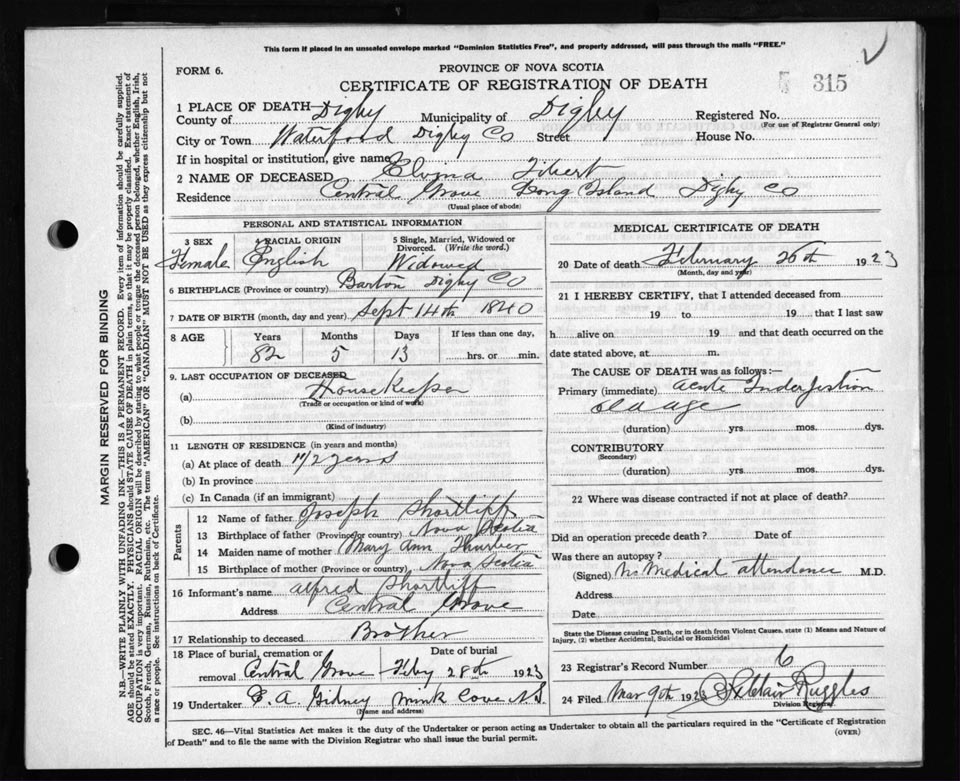 This form if placed in an unsealed envelope marked "Dominion Statistics Free", and properly addressed, will pass through the mails "FREE."
FORM 6.
PROVINCE OF NOVA SCOTIA
CERTIFICATE OF REGISTRATION OF DEATH
315
1 PLACE OF DEATH—
County of Digby Municipality of Digby Registered No.
(For use of Registrar General only)
City or Town Waterford Digby Co Street House No.
If in hospital or institution, give name
2 NAME OF DECEASED Elvina Tibert
Residence Central Grove Long Island Digby Co
(Usual place of abode)
PERSONAL AND STATISTICAL INFORMATION
3 SEX 4 RACIAL ORIGIN 5 Single, Married, Widowed or Divorced. (Write the word.)
Female English Widowed
6 BIRTHPLACE (Province or country) Barton Digby Co
7 DATE OF BIRTH (month, day and year) Sept 14th 1840
8 AGE Years Months Days If less than one day,
82 5 13 hrs. or min.
9. LAST OCCUPATION OF DECEASED
(a) House Keeper
(Trade or occupation or kind of work)
(b)
(Kind of industry)
11 LENGTH OF RESIDENCE (in years and months)
(a) At place of death years
(b) In province
(c) In Canada (if an immigrant)
Parents
12 Name of father Joseph Shortliff
13 Birthplace of father (Province or country) Nova Scotia
14 Maiden name of mother Mary Ann Thurber
15 Birthplace of mother (Province or country) Nova Scotia
16 Informant's name alfred Shortliff
Address Central Grove
17 Relationship to deceased Brother
18 Place of burial, cremation or removal Date of burial
Central Grove Feby 28th 1923
19 Undertaker E. A. Gidney Mink Cove N.S.
(Name and address)
MEDICAL CERTIFICATE OF DEATH
20 Date of death February 26th 1923
(Month, day and year)
21 I HEREBY CERTIFY, that I attended deceased from
19 to 19 that I last saw
h alive on 19 and that death occurred on the
date stated above, at m.
The CAUSE OF DEATH was as follows:—
Primary (immediate) acute Indergestion
old age
(duration) yrs. mos. dys.
CONTRIBUTORY
(Secondary)
(duration) yrs. mos. dys.
22 Where was disease contracted if not at place of death?
Did an operation precede death? Date of
Was there an autopsy?
(Signed) No Medical attendance M.D.
Address
Date
State the Disease causing Death, or in death from Violent Causes, state (1) Means and Nature of
Injury, (2) whether Accidental, Suicidal or Homicidal
23 Registrar's Record Number 6
24 Filed Mar 9th 1923 Ruggles
Division Registrar
SEC. 46—Vital Statistics Act makes it the duty of the Undertaker or person acting as Undertaker to obtain all the particulars required in the "Certificate of Registration
of Death" and to file the same with the Division Registrar who shall issue the burial permit.
(OVER)
MARGIN RESERVED FOR BINDING
N.B.—WRITE PLAINLY WITH UNFADING INK—THIS IS A PERMANENT RECORD. Every item of information should be carefully supplied.
AGE should be stated EXACTLY. PHYSICIANS should STATE CAUSE OF DEATH in plain terms, so that it may be properly classified. Exact statement of
OCCUPATION is very important. RACIAL ORIGIN will be described by stating to what people or tongue the deceased person belonged, whether English, Irish,
Scotch, French, German, Russian, Ruthenian, etc. The terms "AMERICAN" OR "CANADIAN" MUST NOT BE USED as they express citizenship but not
a race or people. See instructions on back of Certificate.